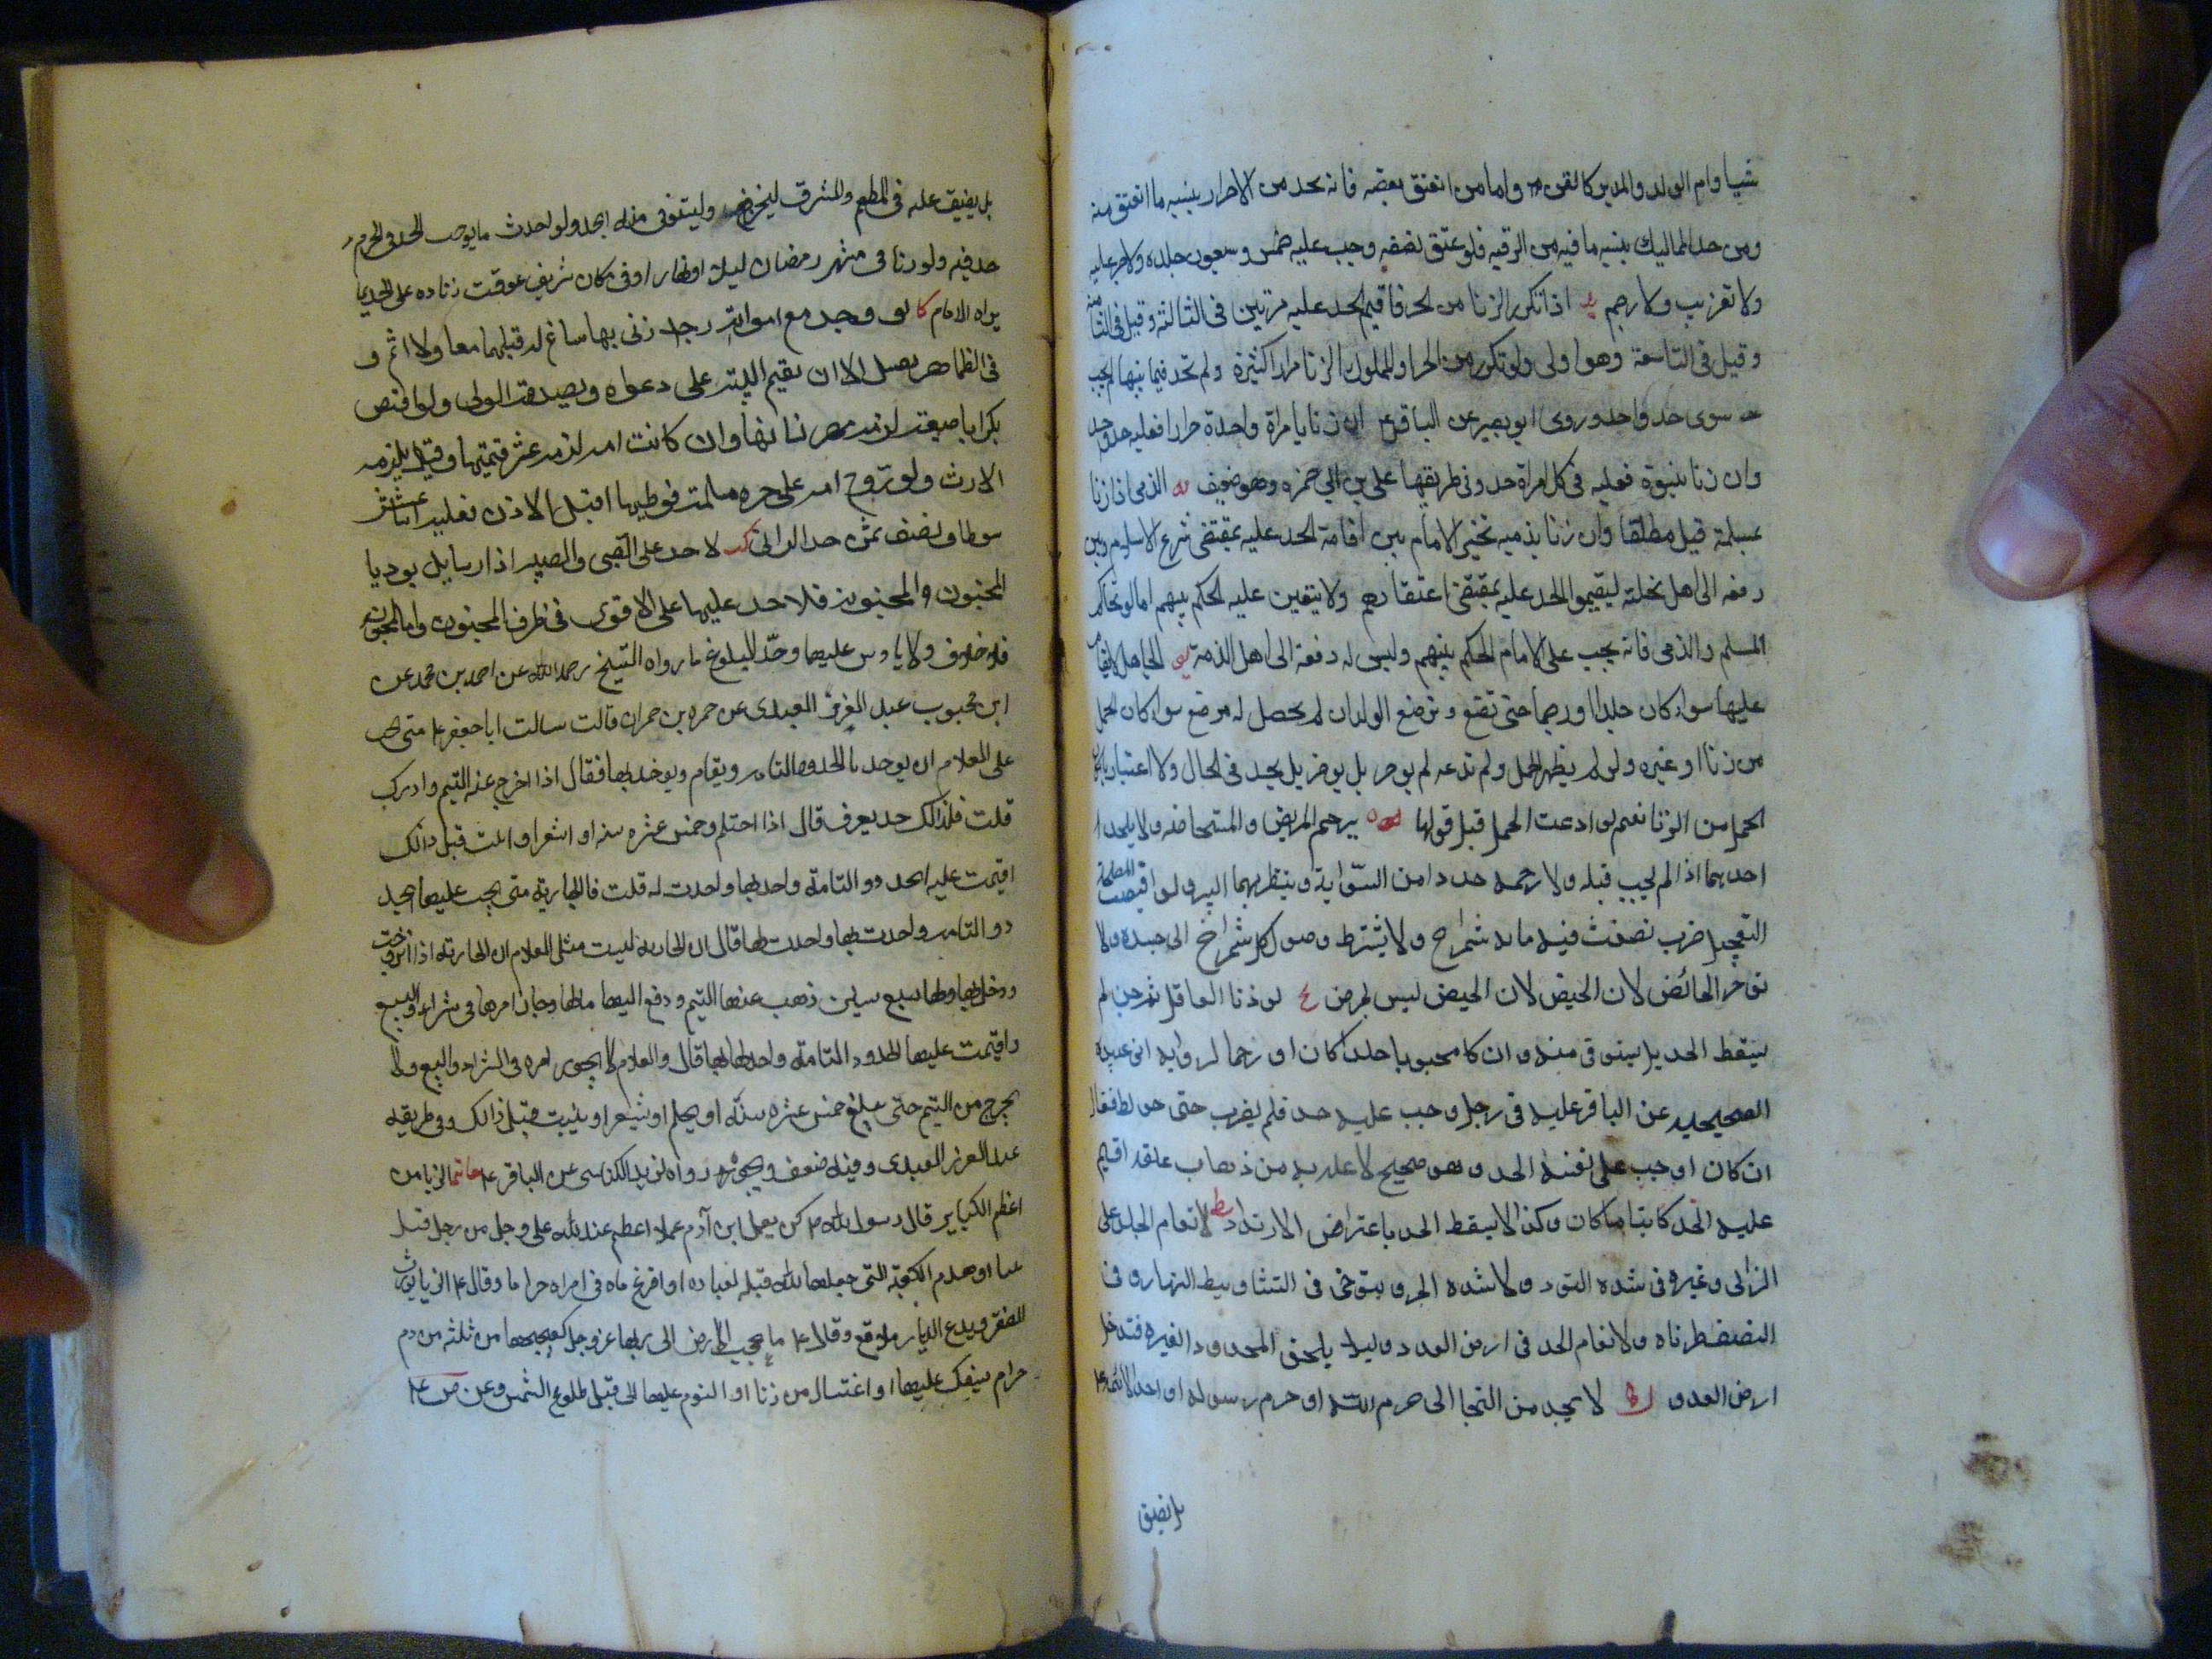 شيا وام الولد والمدبر كالقن واما من انعتق بعضه فانه يحد من الاحرار بنسبه ما انعتق منه
ومن حد المماليك بنسبه ما فيه من الرقيه فلو عتق نصفه وجب عليه خمس وسبعون جلده ولا جز عليه
ولا تغريب ولا رجم يد اذا تكرر الزنا من الحر فاقيم الحد عليه مرتين فى الثالثة وقيل فى الثامنه
وقيل فى التاسعة وهو اولى ولو تكرر من الحر او المملوك الزنا مرارا كثيرة ولم تحد فيما بينها لم يجب
سوى حد واحد وروى ابو بصير عن الباقر ع ان زنا بامراة واحدة مرارا فعليه حد واحد
وان زنا بنسوة فعليه فى كل امراة حد وفى طريقها على بن ابي حمزه وهو ضعيف يه الذمى اذا زنا
بمسلمة قتل مطلقا وان زنا بذميه تخير الامام بين اقامة الحد عليه بمقتضى شرع الاسلام وبين
دفعه الى اهل نحلته ليقيموا الحد عليه بمقتضى اعتقادهم ولا يتعين عليه الحكم بينهم اما لو تحاكم
المسلم والذمى فانه يجب على الامام الحكم بينهم وليس له دفعة الى اهل الذمة يو الحامل لا يقام
عليها سواء كان جلدا او رجما حتى تضع وترضع الولد ان لم يحصل له مرضع سواء كان الحمل
من زنا او غيره ولو لم يظهر الحمل ولم تدعه لم يوخر بل يحد فى الحال ولا اعتبار بامكان
الحمل من الزنا نعم لو ادعت الحمل قبل قولها يرجم المريض والمستحاضه ولا يجلد
احدهما اذا لم يجب قتله ولا رجمه حذرا من السراية وينتظر بهما البرء ولو اقتضت المصلحة
التعجيل ضرب بضغث فيه مايه شمراخ ولا يشترط وصول كل شمراخ الى جسده ولا
توخر الحائض لان الحيض لان الحيض ليس بمرض يح لو زنا العاقل ثم جن لم
يسقط الحد بل يستوفى منه وان كا مجنونا جلدا كان او رجما لروايه ابى عبيده
الصحيحه عن الباقر عليه فى رجل وجب عليه حد فلم يضرب حتى خولط فقال
ان كان اوجب على نفسه الحد وهو صحيح لا علة به من ذهاب عقله اقيم
عليه الحد كائنا ما كان وكذا لا يسقط الحد باعتراض الارتداد يط لا تقام الجلد على
الزانى وغيره فى شده البرد ولا شده الحر ويتوخى فى الشتا وسط النهار وفى
الصيف طرفاه ولا تقام الحد فى ارض العدو ليلا يلحق المحدود الغيره فتدخل
ارض العدو ك لا يحد من التجا الى حرم الله او حرم رسوله او احد الائمه ع
بل يضيق
بل يضيق عليه فى المطعم والمشرب ليخرج وليستوفى منه الحد ولو احدث ما يوجب الحد فى الحرم
حد فيه ولو زنا فى شهر رمضان ليلا او نهارا او فى مكان شريف عوقب زياده على الحد بما
يراه الامام كا لو وجد مع امراته رجلا زنى بها ساغ له قتلهما معا ولا اثم و
فى الظاهر يقتل الا ان يقيم البينة على دعواه ويصدقه الولى ولو افتض
بكرا باصبعه لزمه مهر نسائها وان كانت امه لزمه عشر قيمتها وقيل يلزمه
الارش ولو تزوج امه على حره مسلمة فوطيها قبل الاذن فعليه اثنا عشر
سوطا ونصف ثمن حد الزانى كب لا حد على الصبى والصبيه اذا زنيا بل يودبا
المجنون والمجنونه فلا حد عليهما على الاقوى فى طرف المجنون واما المجنونه
فلا خلاف ولا باس عليهما وحد البلوغ ما رواه الشيخ رحمه الله عن احمد بن محمد عن
ابن محبوب عبد العزيز العبدى عن حمزه بن حمران قالت سالت ابا جعفر ع متى يجب
على الغلام ان يوخذ بالحدود التامه ويقام ويوخذ بها فقال اذا خرج عنه اليتم وادرك
قلت فلذلك حد يعرف قال اذا احتلم وخمس عشره سنه او اشعر او انبت قبل ذلك
اقيمت عليه الحدود التامة واخذ بها واخذت له قلت فالجارية متى يجب عليها الحد
دو التامه واخذت بها واخذت لها قال ان الجارية ليست مثل الغلام ان الجارية اذا تزوجت
ودخل بها ولها تسع سنين ذهب عنها اليتم ودفع اليها مالها وجاز امرها فى شراء والبيع
واقيمت عليها الحدود التامة واخذ لها بها قال والغلام لا يجوز امره فى الشراء والبيع ولا
يخرج من اليتم حتى يبلغ خمس عشره سنة او يحلم او يشعر او ينبت قبل ذلك وفى طريقه
عبد العزيز العبدى وفيه ضعف رواه يزيد الكناسى عن الباقر ع خاتمه الزنا من
اعظم الكباير قال رسول الله ص لن يعمل ابن آدم عملا اعظم عند الله عز وجل من رجل قتل
نبيا او هدم الكعبة التى جعلها الله قبله لعباده او افرغ ماه فى امراه حراما وقال ع الزنا يورث
الفقر ويدع الديار بلاقع وقال ع ما عجت الارض الى ربها عز وجل كعجيجها من ثلثه من دم
حرام يسفك عليها او اغتسال من زنا او النوم عليها الى قبل طلوع الشمس وعن ص ع